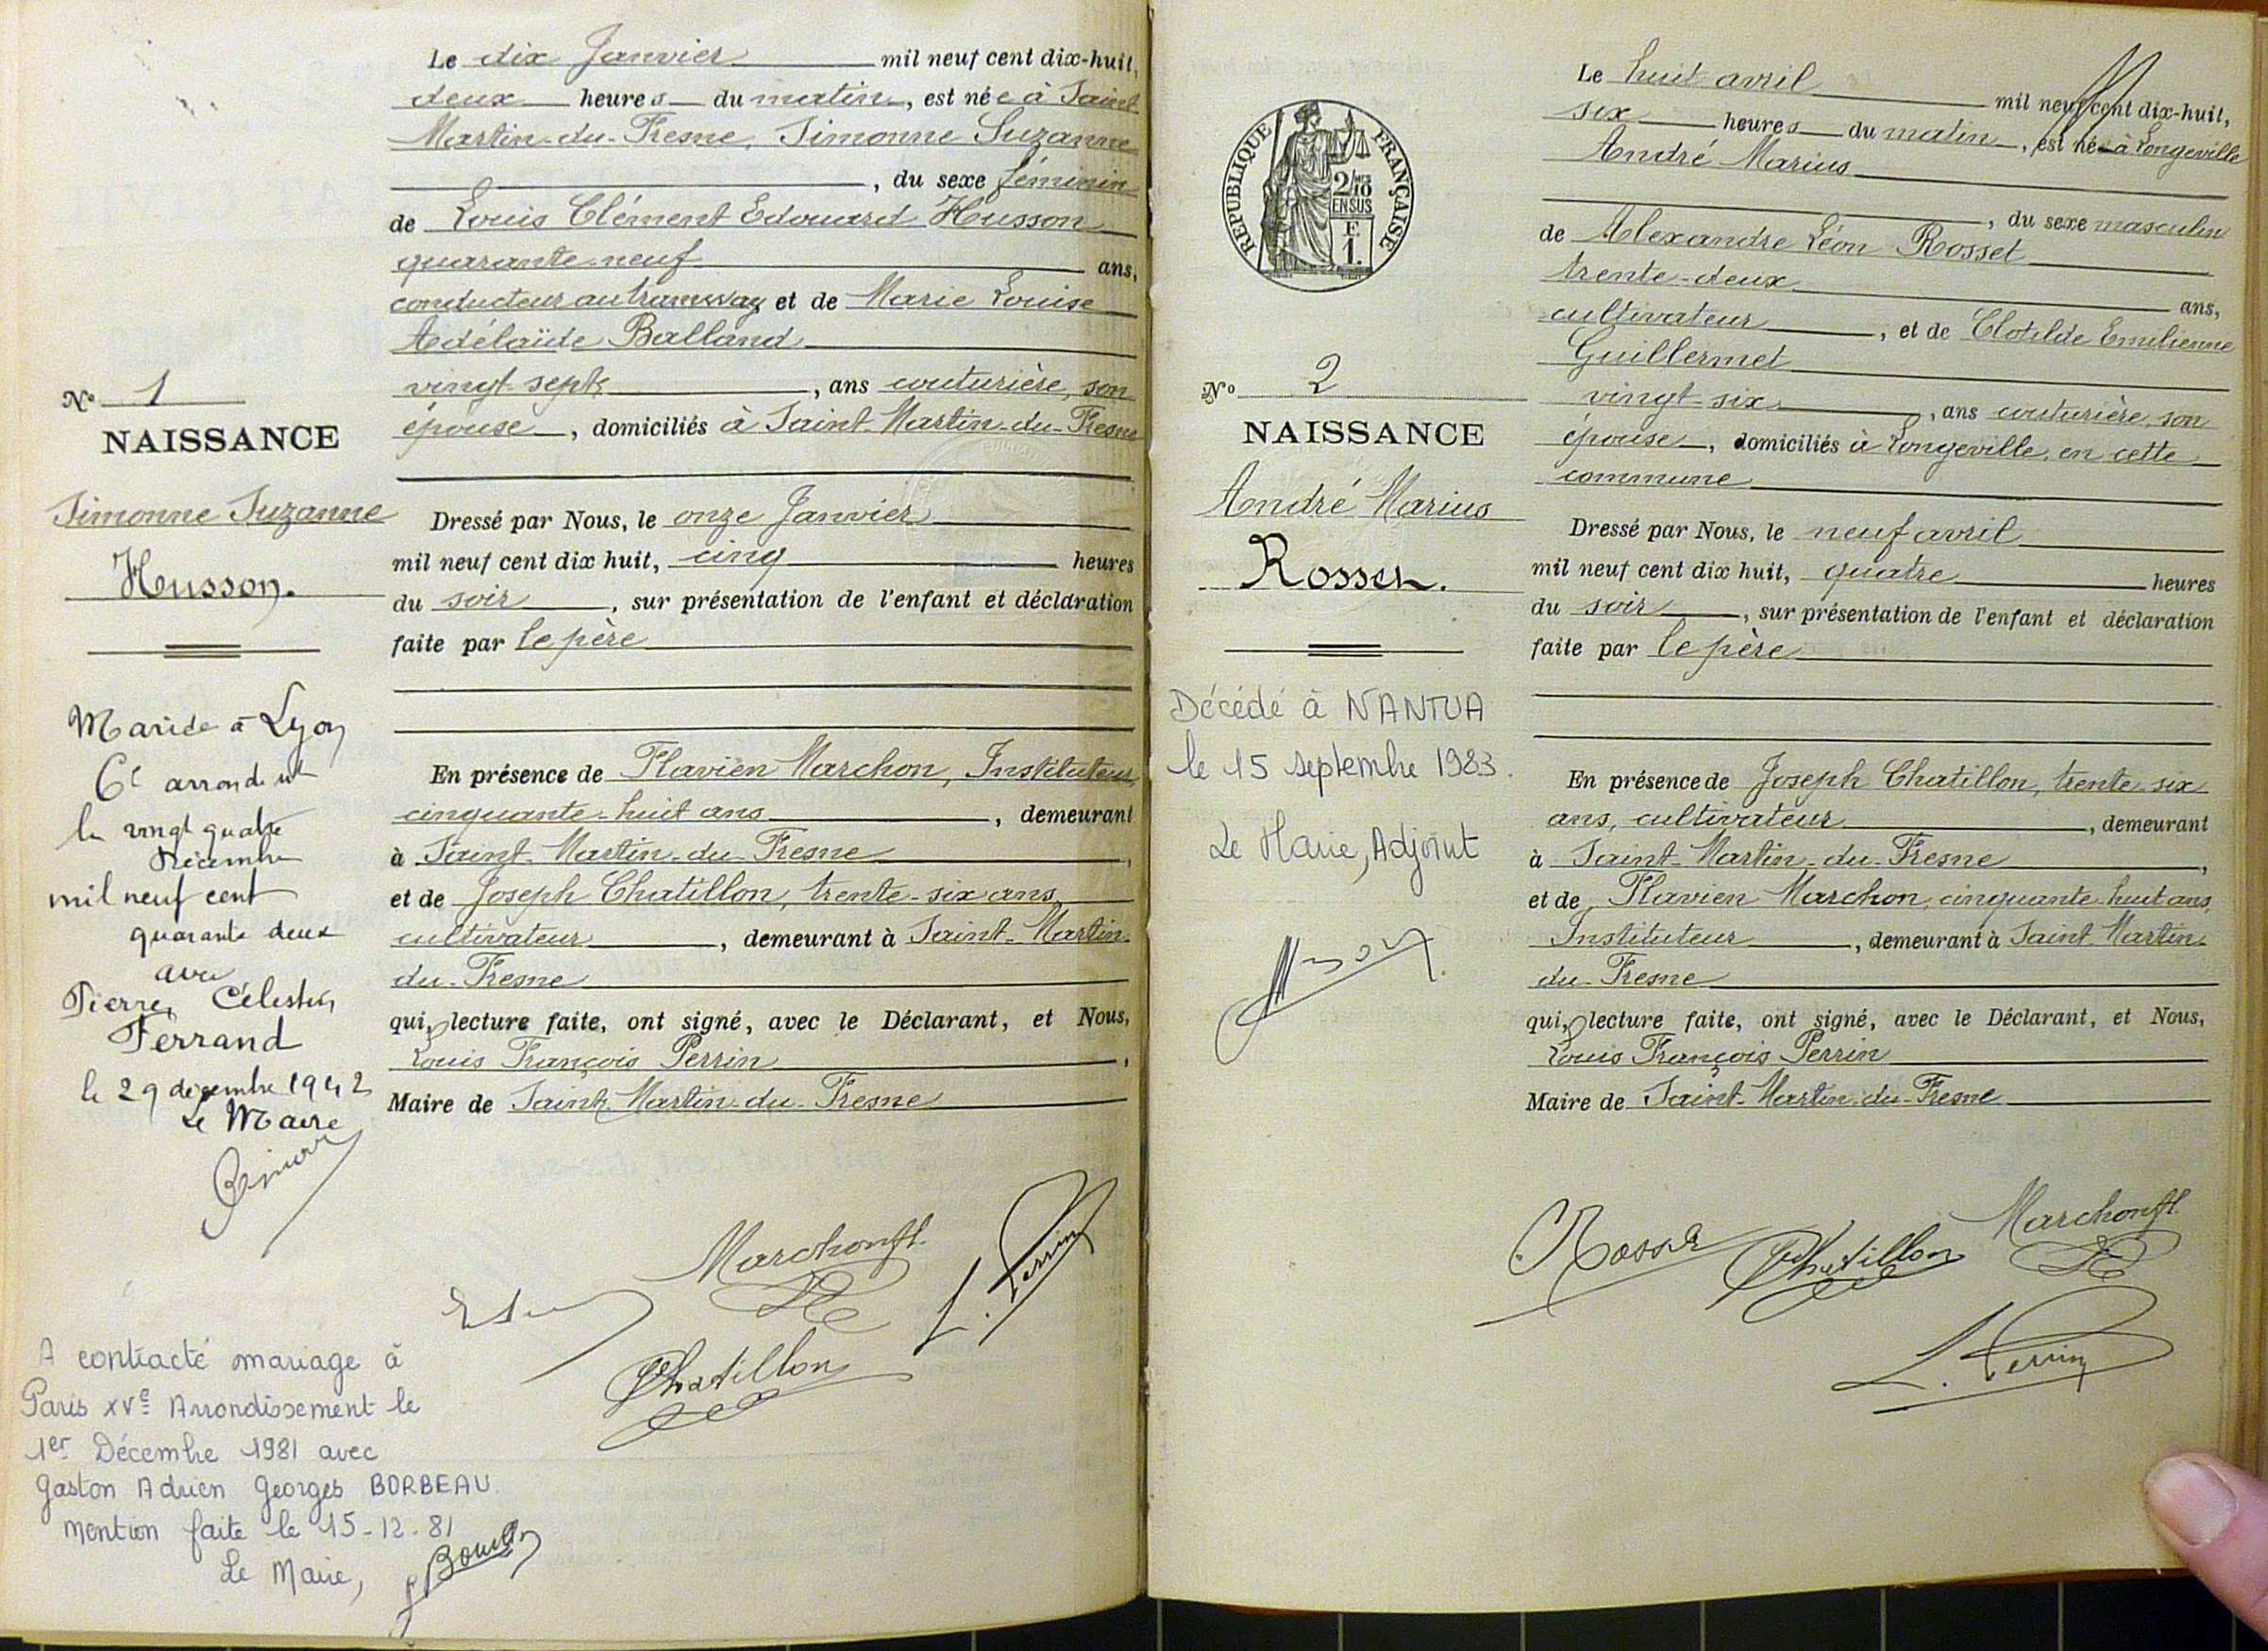 Le dix Janvier mil neuf cent dix-huit,
deux heures du matin, est née à Saint
Martin-du-Fresne, Simonne Suzanne
, du sexe féminin
de Louis Clément Edouard Husson
quarante-neuf ans,
conducteur au tramway et de Marie Louise
Adélaïde Balland
vingt sept, ans couturière, son
épouse, domiciliés à Saint-Martin-du-Fresne
Nº 1
NAISSANCE
Simonne Suzanne
Husson.
Dressé par Nous, le onze Janvier
mil neuf cent dix huit, cinq heures
du soir, sur présentation de l'enfant et déclaration
faite par le père
En présence de Flavien Marchon, Instituteur,
cinquante-huit ans, demeurant
à Saint-Martin-du-Fresne,
et de Joseph Chatillon, trente-six ans
cultivateur, demeurant à Saint-Martin-
du-Fresne
qui, lecture faite, ont signé, avec le Déclarant, et Nous,
Louis François Perrin,
Maire de Saint-Martin-du-Fresne
Mariée à Lyon
6e arrondt
le vingt quatre
Décembre
mil neuf cent
quarante deux
avec
Pierre, Célestin
Ferrand
le 29 décembre 1942
Le Maire
Marchon fl.
L. Perrin
Chatillon
A contracté mariage à
Paris XVe Arrondissement le
1er Décembre 1981 avec
Gaston Adrien Georges BORBEAU
mention faite le 15-12-81
Le Maire,
RÉPUBLIQUE FRANÇAISE
2/10
EN SUS
F.
1.
Le huit avril mil neuf cent dix-huit,
six heures du matin, est né à Longeville
André Marius
, du sexe masculin
de Alexandre Léon Rosset
trente-deux ans,
cultivateur, et de Clotilde Emilienne
Guillermet
vingt six, ans couturière, son
épouse, domiciliés à Longeville, en cette
commune
Nº 2
NAISSANCE
André Marius
Rosset.
Dressé par Nous, le neuf avril
mil neuf cent dix huit, quatre heures
du soir, sur présentation de l'enfant et déclaration
faite par le père
Décédé à NANTUA
le 15 septembre 1983.
Le Maire, Adjoint
En présence de Joseph Chatillon, trente-six
ans, cultivateur, demeurant
à Saint-Martin-du-Fresne,
et de Flavien Marchon, cinquante-huit ans,
Instituteur, demeurant à Saint Martin-
du-Fresne
qui, lecture faite, ont signé, avec le Déclarant, et Nous,
Louis François Perrin
Maire de Saint-Martin-du-Fresne
Rosset
Chatillon
Marchon fl.
L. Perrin